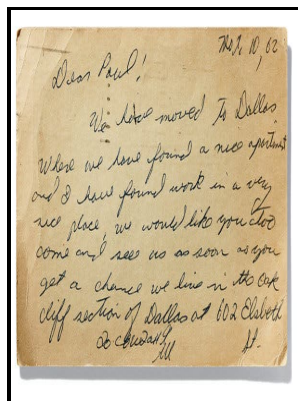 10, 62
Dear Paul!
We have moved to Dallas
Where we have found a nice apartment
and I have found work in a very
nice place, we would like you too
come and see us as soon as you
get a chance we live in the oak
cliff section of Dallas at 602 Elsbeth
St.